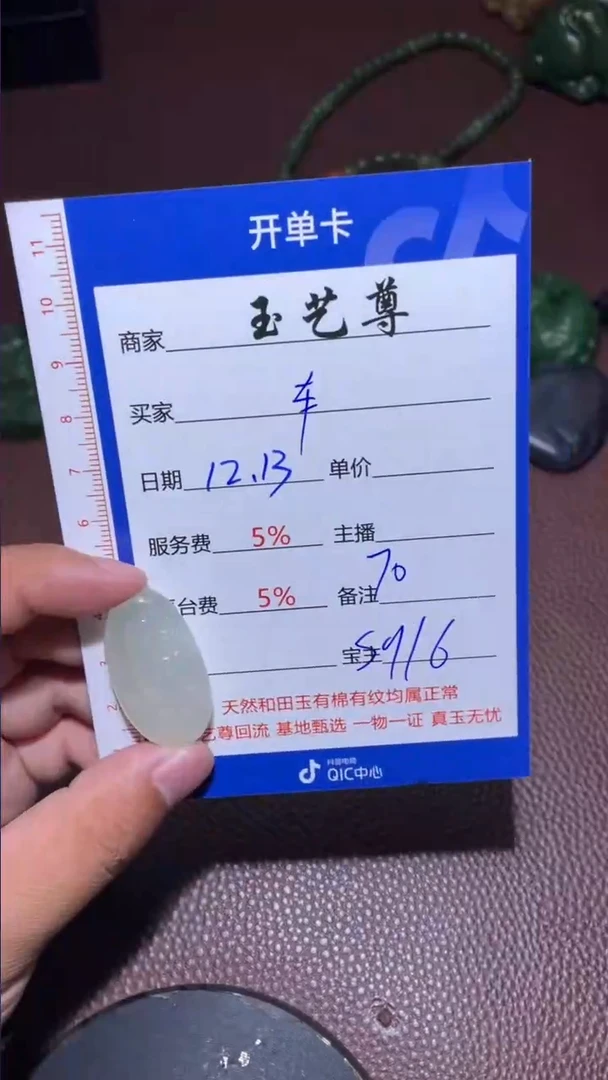 开单卡
商家 玉艺尊
买家 车
日期 12.13 单价
服务费 5% 主播
台费 5% 备注 70
宝主 5916
天然和田玉有棉有纹均属正常
艺尊回流 基地甄选 一物一证 真玉无忧
抖音电商
QIC中心
11
10
9
8
7
6
3
2